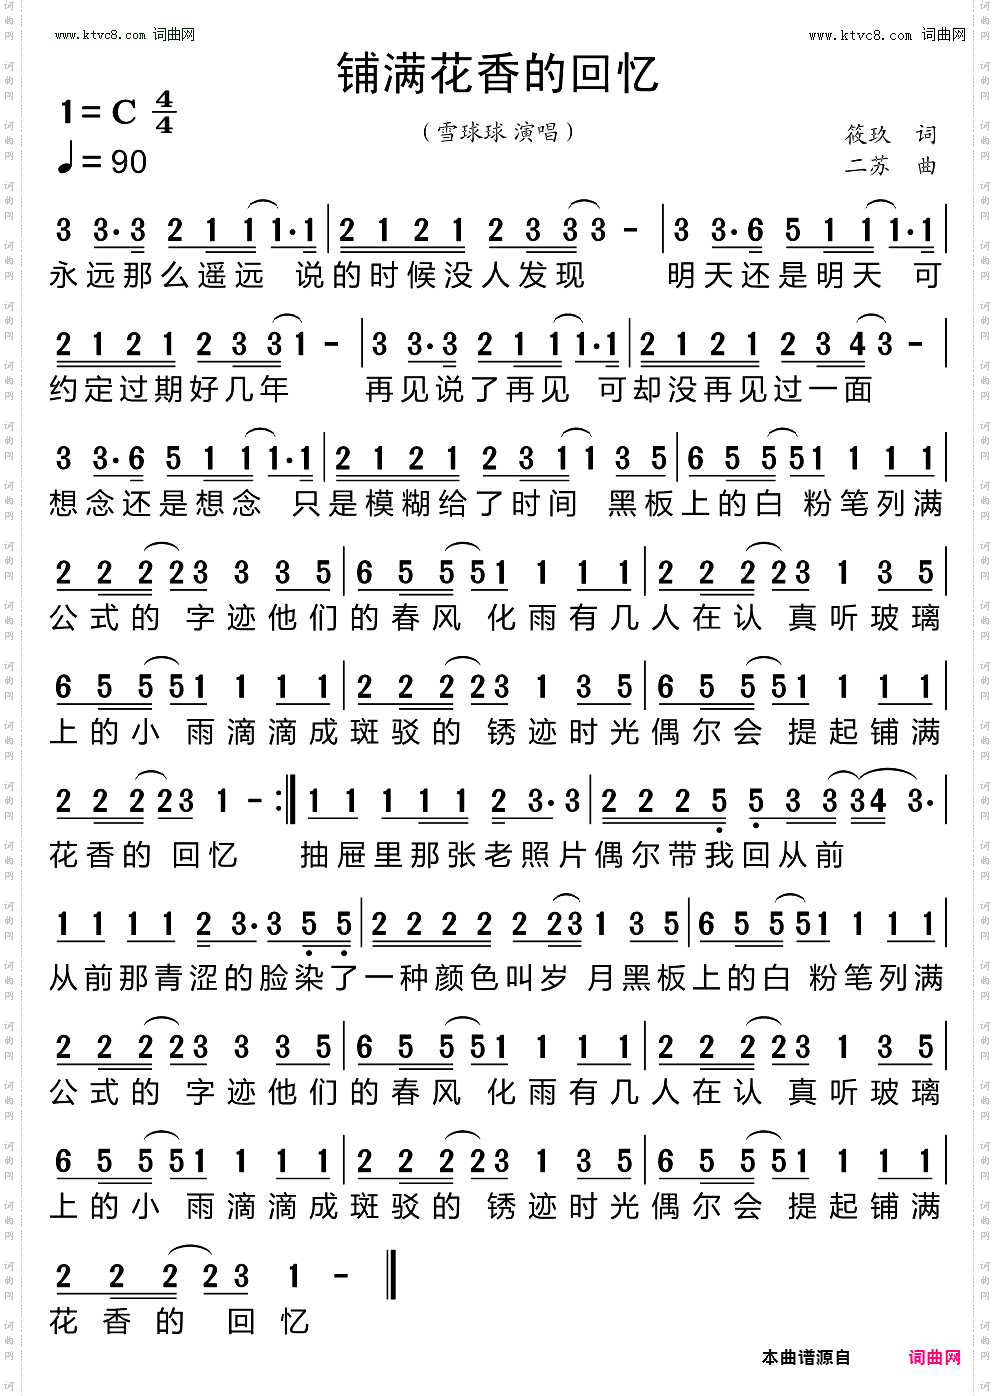 www.ktvc8.com 词曲网
www.ktvc8.com 词曲网
铺满花香的回忆
1=C 4/4
(雪球球 演唱)
筱玖 词
♩=90
二苏 曲
3 3·3 2 1 1 1·1 | 2 1 2 1 2 3 3 3 - | 3 3·6 5 1 1 1·1 |
永远那么遥远 说的时候没人发现 明天还是明天 可
2 1 2 1 2 3 3 1 - | 3 3·3 2 1 1 1·1 | 2 1 2 1 2 3 4 3 - |
约定过期好几年 再见说了再见 可却没再见过一面
3 3·6 5 1 1 1·1 | 2 1 2 1 2 3 1 1 3 5 | 6 5 5 5 1 1 1 1 |
想念还是想念 只是模糊给了时间 黑板上的白 粉笔列满
2 2 2 2 3 3 3 5 | 6 5 5 5 1 1 1 1 | 2 2 2 2 3 1 3 5 |
公式的 字迹他们的春风 化雨有几人在认 真听玻璃
6 5 5 5 1 1 1 1 | 2 2 2 2 3 1 3 5 | 6 5 5 5 1 1 1 1 |
上的小 雨滴滴成斑驳的 锈迹时光偶尔会 提起铺满
2 2 2 2 3 1 - :‖ 1 1 1 1 1 2 3·3 | 2 2 2 5 5 3 3 3 4 3· |
花香的 回忆 抽屉里那张老照片偶尔带我回从前
1 1 1 1 2 3·3 5 5 | 2 2 2 2 2 2 3 1 3 5 | 6 5 5 5 1 1 1 1 |
从前那青涩的脸染了一种颜色叫岁 月黑板上的白 粉笔列满
2 2 2 2 3 3 3 5 | 6 5 5 5 1 1 1 1 | 2 2 2 2 3 1 3 5 |
公式的 字迹他们的春风 化雨有几人在认 真听玻璃
6 5 5 5 1 1 1 1 | 2 2 2 2 3 1 3 5 | 6 5 5 5 1 1 1 1 |
上的小 雨滴滴成斑驳的 锈迹时光偶尔会 提起铺满
2 2 2 2 3 1 - ‖
花香的 回忆
本曲谱源自 词曲网